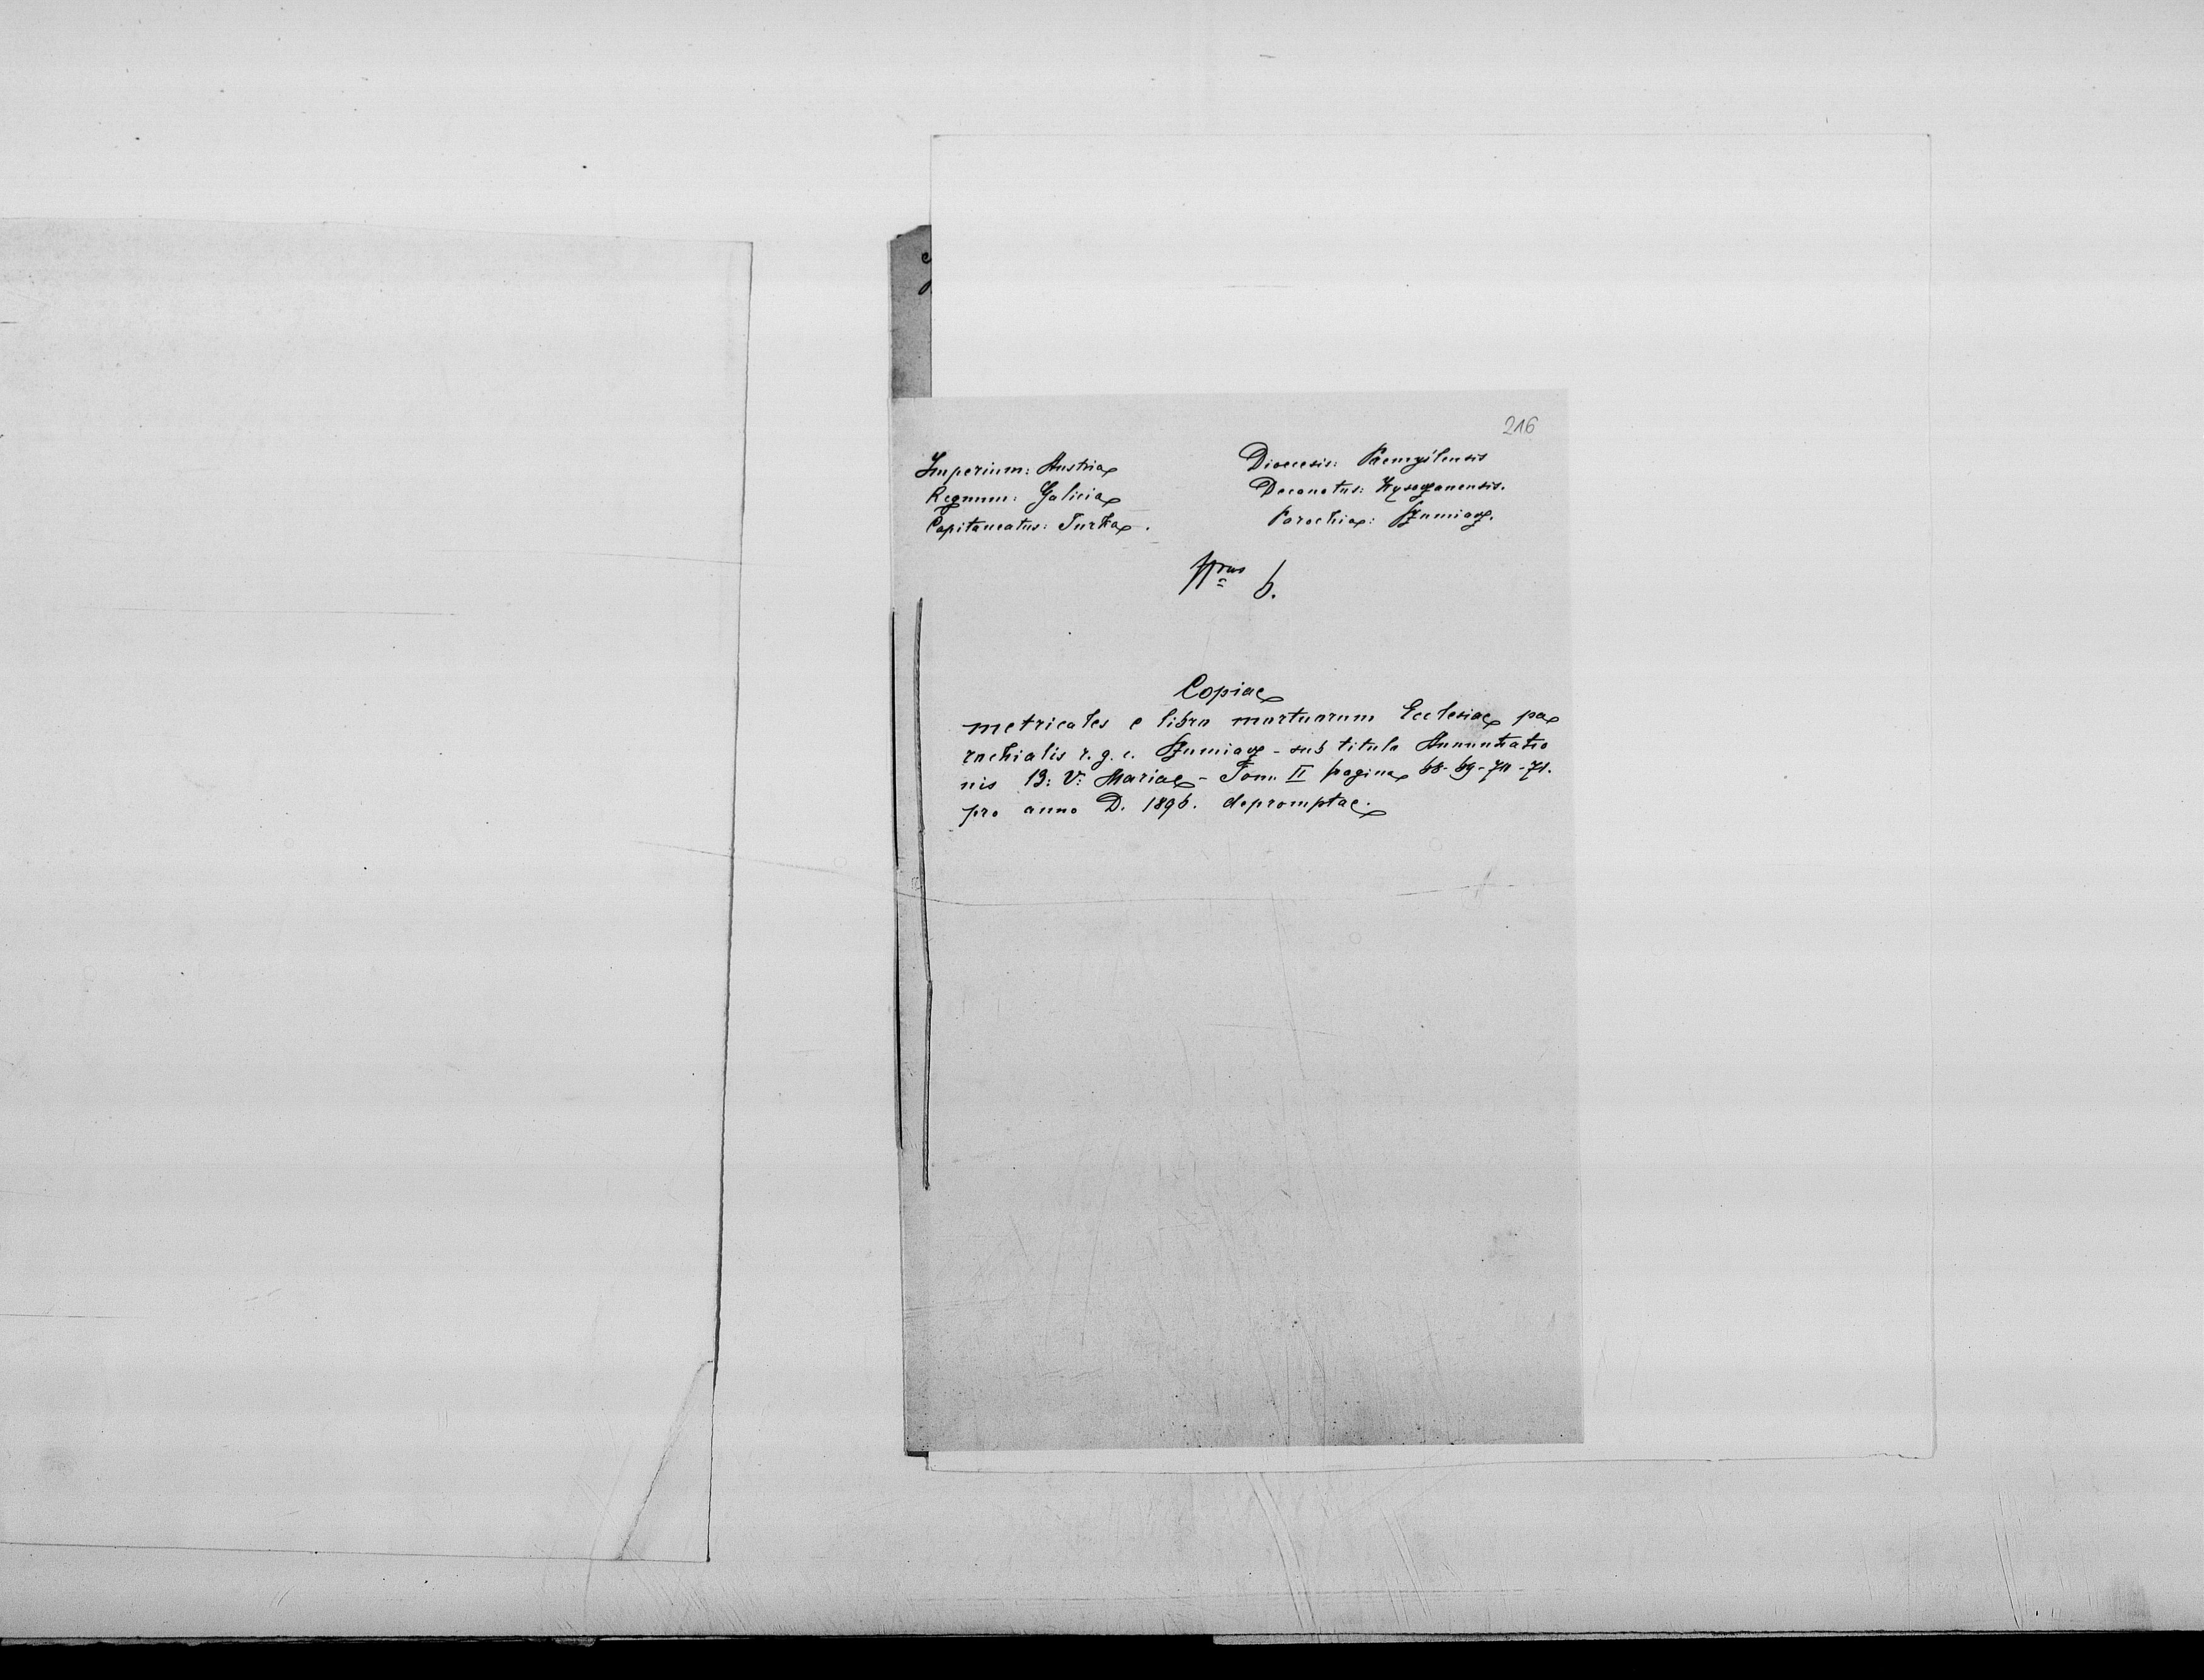 216
Imperium: Austria
Regnum: Galicia
Capitaneatus: Turka.
Dioecesis: Premyślensis
Decanatus: Wysoczanensis.
Parochia: Szumiacz.
6.
Copiae
metricales e libro mortuorum Ecclesiae pa
rochialis r. g. c. Szumiacz - sub titulo Annuntiatio
nis B: V: Mariae - Tom. II pagina 68-69-70-71.
pro anno D. 1896. depromptae.